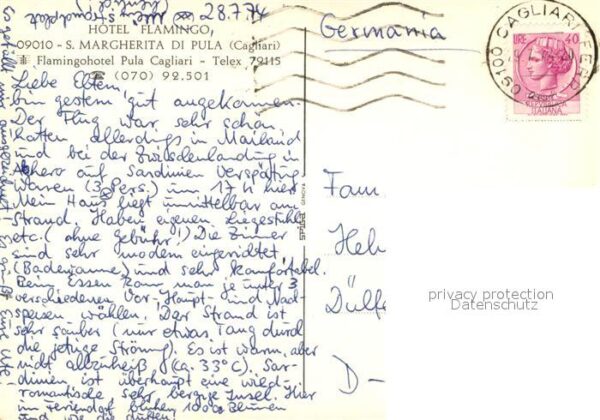 28.7.74
HOTEL FLAMINGO
09010 - S. MARGHERITA DI PULA (Cagliari)
Flamingohotel Pula Cagliari - Telex 79115
☎ (070) 92.501
Liebe Eltern,
bin gestern gut angekommen.
Der Flug war sehr schön,
hatten allerdings in Mailand
und bei der Zwischenlandung in
Alghero auf Sardinien Verspätung
waren (3 Pers.) um 17 h hier
Mein Haus liegt unmittelbar am
Strand. Haben eigenen Liegestuhl
etc. (ohne Gebühr!) Die Zimmer
sind sehr modern eingerichtet
(Badewanne) und sehr komfortabel.
Beim Essen kann man je unter 3
verschiedenen Vor- Haupt- und Nach-
speisen wählen. Der Strand ist
sehr sauber (nur etwas Tang durch
die jetzige Strömung). Es ist warm, aber
nicht allzu heiß (ca. 33°C). Sar-
dinien ist überhaupt eine wild-
romantische sehr bergige Insel. Hier
im Feriendorf blühen 1000 Blumen
und
Germania
09100 CAGLIARI FERR.
LIRE 40
ITALIANA
Fam
Hel
Dülle
D-
GENOVA
privacy protection
Datenschutz
Es gefällt mir ausgezeichnet!
Eure Ute!